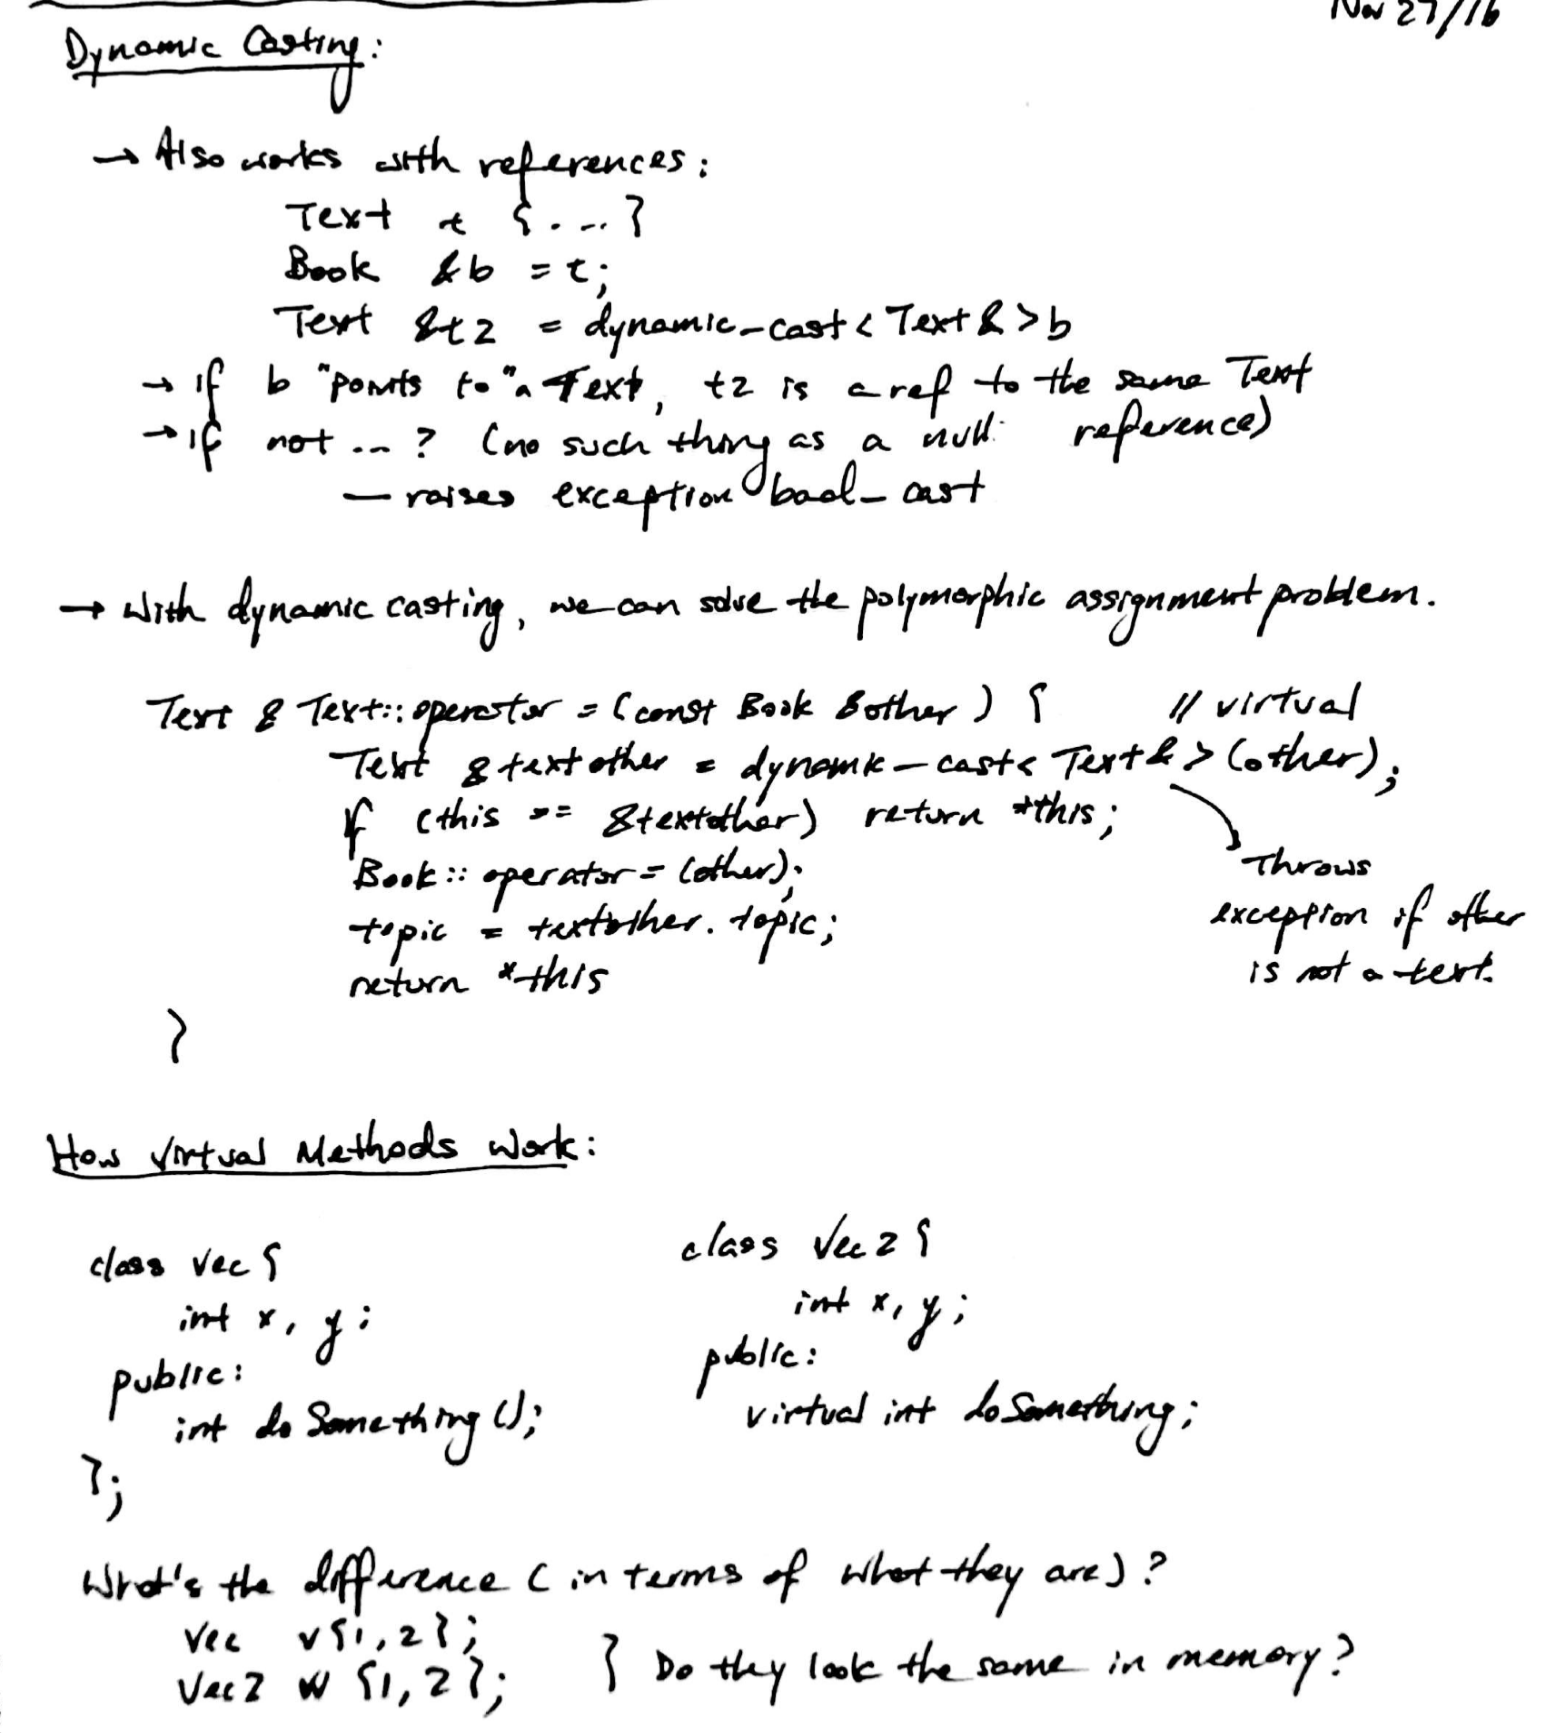 Nov 27/16
Dynamic Casting:
→ Also works with references:
Text t {...}
Book &b = t;
Text &t2 = dynamic_cast<Text&>b
→ if b "points to" a Text, t2 is a ref to the same Text
→ if not ... ? (no such thing as a null reference)
— raises exception bad_cast
→ With dynamic casting, we can solve the polymorphic assignment problem.
Text & Text::operator = (const Book &other) { // virtual
Text &textother = dynamic_cast<Text&>(other);
if (this == &textother) return *this;
Book::operator=(other);
topic = textother.topic;
return *this
}
Throws
exception if other
is not a text.
How Virtual Methods Work:
class Vec {
int x, y;
public:
int doSomething();
};
class Vec2 {
int x, y;
public:
virtual int doSomething;
What's the difference (in terms of what they are)?
Vec v{1,2};
Vec2 w {1,2};
} Do they look the same in memory?